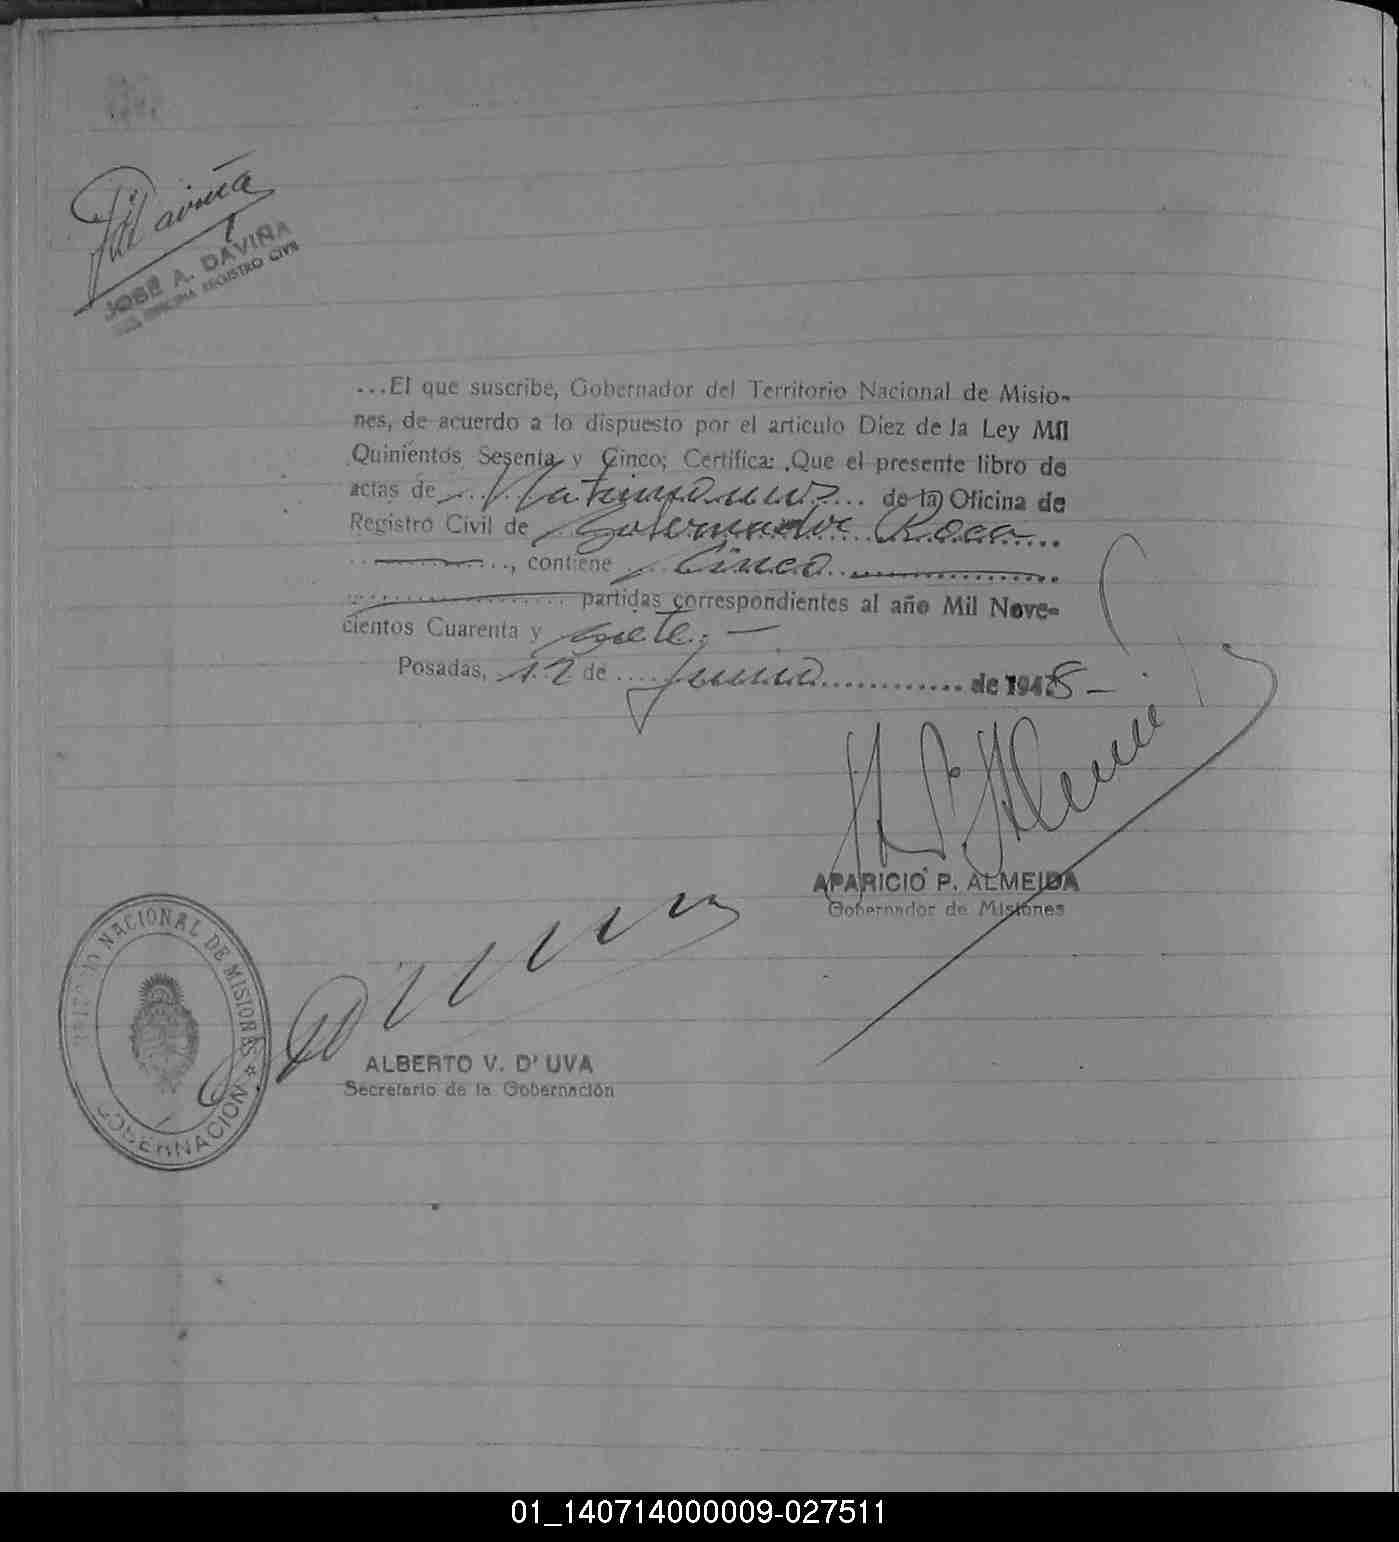 JOSÉ A. DAVIÑA
REGISTRO CIVIL
...El que suscribe, Gobernador del Territorio Nacional de Misio-
nes, de acuerdo a lo dispuesto por el artículo Diez de la Ley Mil
Quinientos Sesenta y Cinco; Certifica: Que el presente libro de
actas de ... Matrimonios ... de la Oficina de
Registro Civil de Gobernador Roca ....
.., contiene ... Cinco ....
.... partidas correspondientes al año Mil Nove-
cientos Cuarenta y siete.-
Posadas, 12 de .... Junio ............ de 1948-
APARICIO P. ALMEIDA
Gobernador de Misiones
NACIONAL DE MISIONES
GOBERNACION
ALBERTO V. D'UVA
Secretario de la Gobernación
01_140714000009-027511